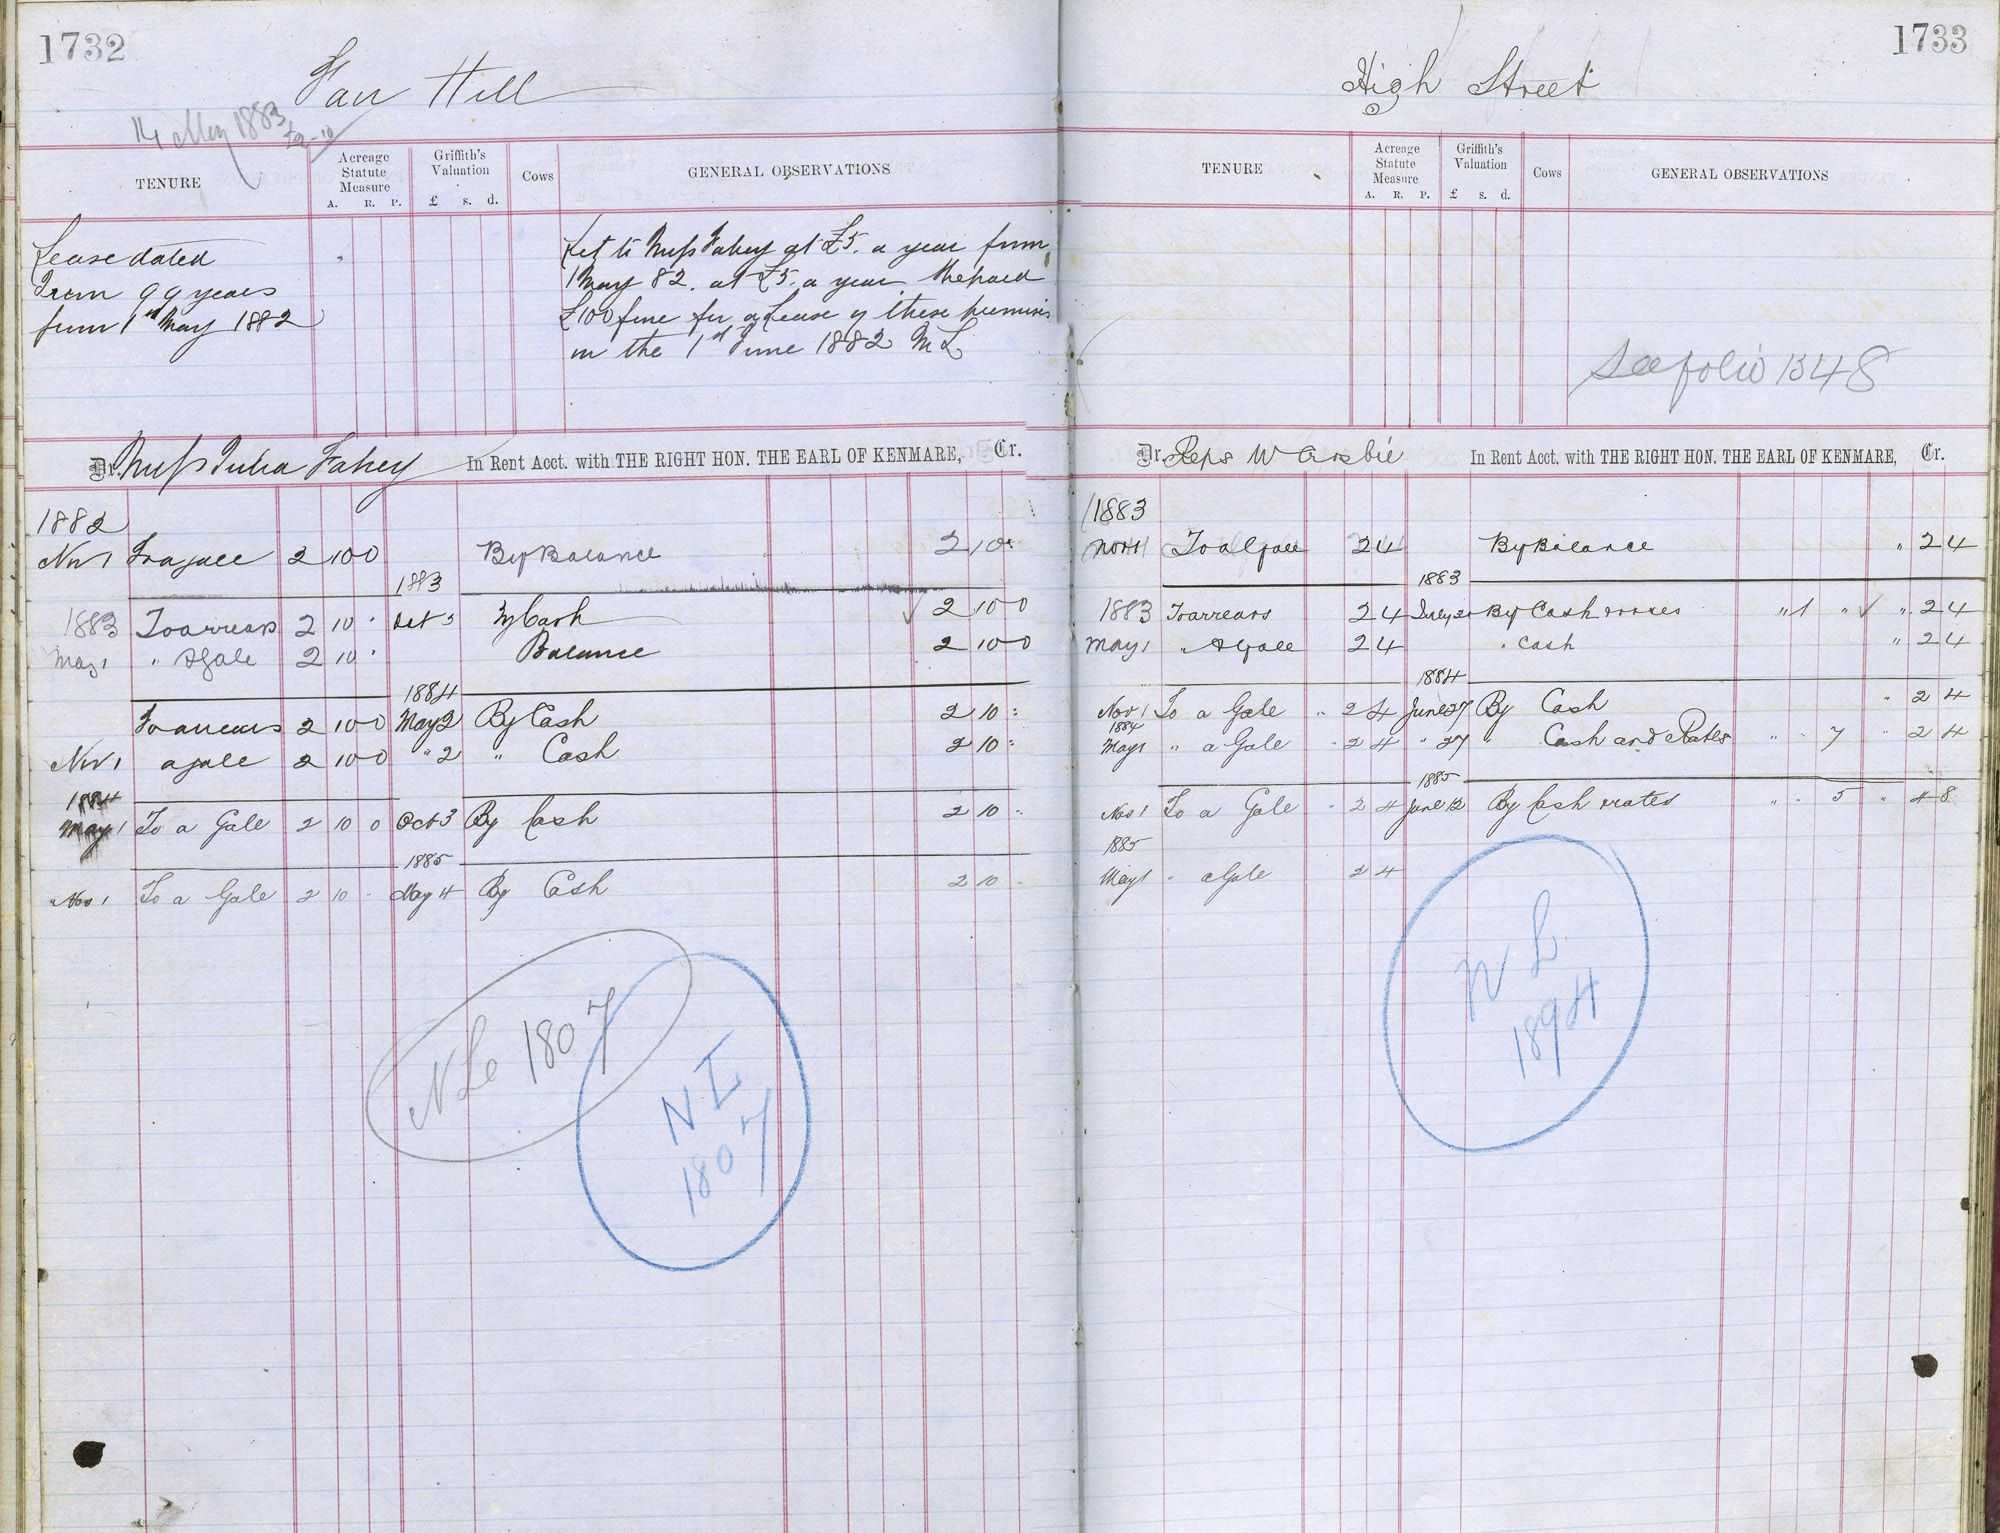 1732
Fair Hill
14 May 1883
TENURE
Acreage Statute Measure
A. R. P.
Griffith's Valuation
£ s. d.
Cows
GENERAL OBSERVATIONS
Lease dated
Term 99 years
from 1st May 1882
Let to Miss Fahey at £5. a year from
1 May 82. at £5. a year She paid
£100 fine for a Lease of these premises
on the 1st June 1882 ML
Dr. Miss Julia Fahey In Rent Acct. with THE RIGHT HON. THE EARL OF KENMARE, Cr.
1882
Nov 1 To a gale 2 10 0 By Balance 2 10 "
1883
1883 To arrears 2 10 " Oct 3 By Cash 2 10 0
May 1 " A gale 2 10 " Balance 2 10 0
1884
To arrears 2 10 0 May 2 By Cash 2 10 "
Nov 1 a gale 2 10 0 " 2 " Cash 2 10 "
1884
May 1 To a Gale 2 10 0 Oct 3 By Cash 2 10 "
1885
Nov 1 To a Gale 2 10 - May 4 By Cash 2 10 -
N Le 1807
N L
1807
1733
High Street
TENURE
Acreage Statute Measure
A. R. P.
Griffith's Valuation
£ s. d.
Cows
GENERAL OBSERVATIONS
See folio 1348
Dr. Reps W In Rent Acct. with THE RIGHT HON. THE EARL OF KENMARE, Cr.
1883
Nov 1 To a gale 2 4 By Balance " 2 4
1883
1883 To arrears 2 4 July By Cash " 1 " " 2 4
May 1 " A gale 2 4 " Cash " 2 4
1884
Nov 1 To a Gale " 2 4 June 27 By Cash " 2 4
1884
May 1 " a Gale " 2 4 " 27 " Cash and Rates " " 7 " 2 4
1885
Nov 1 To a Gale " 2 4 June 12 By Cash & rates " " 5 " 4 8
1885
May 1 " a Gale 2 4
N L
1894